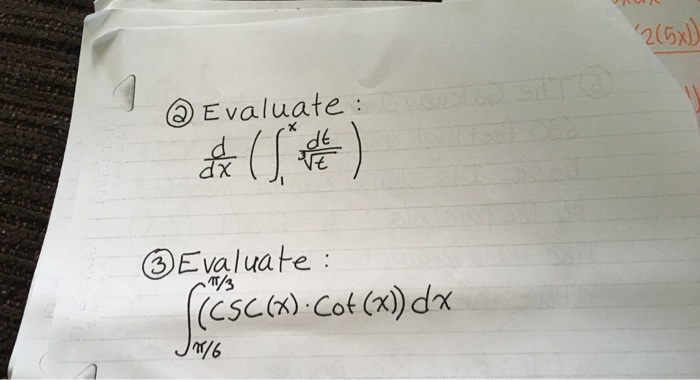 2(5x))
② Evaluate :
d/dx (∫₁ˣ dt/∛t)
③ Evaluate :
∫_{π/6}^{π/3} (csc(x)·Cot(x)) dx